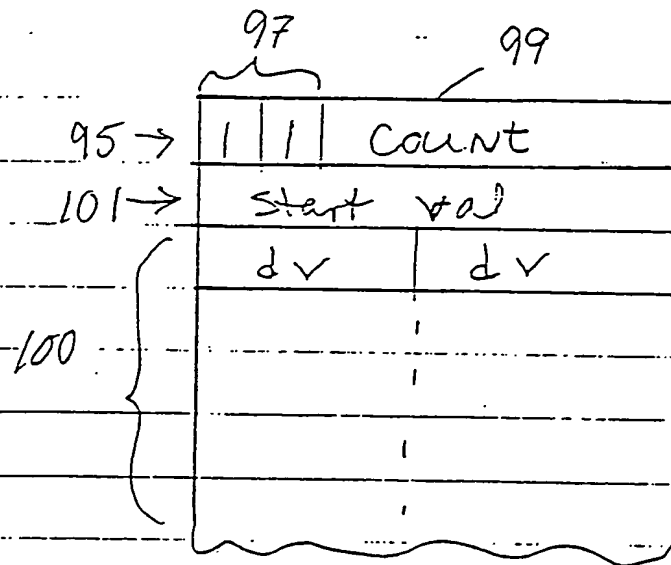 97 99
95 → 1 1 COUNT
101 → start val
dv dv
100